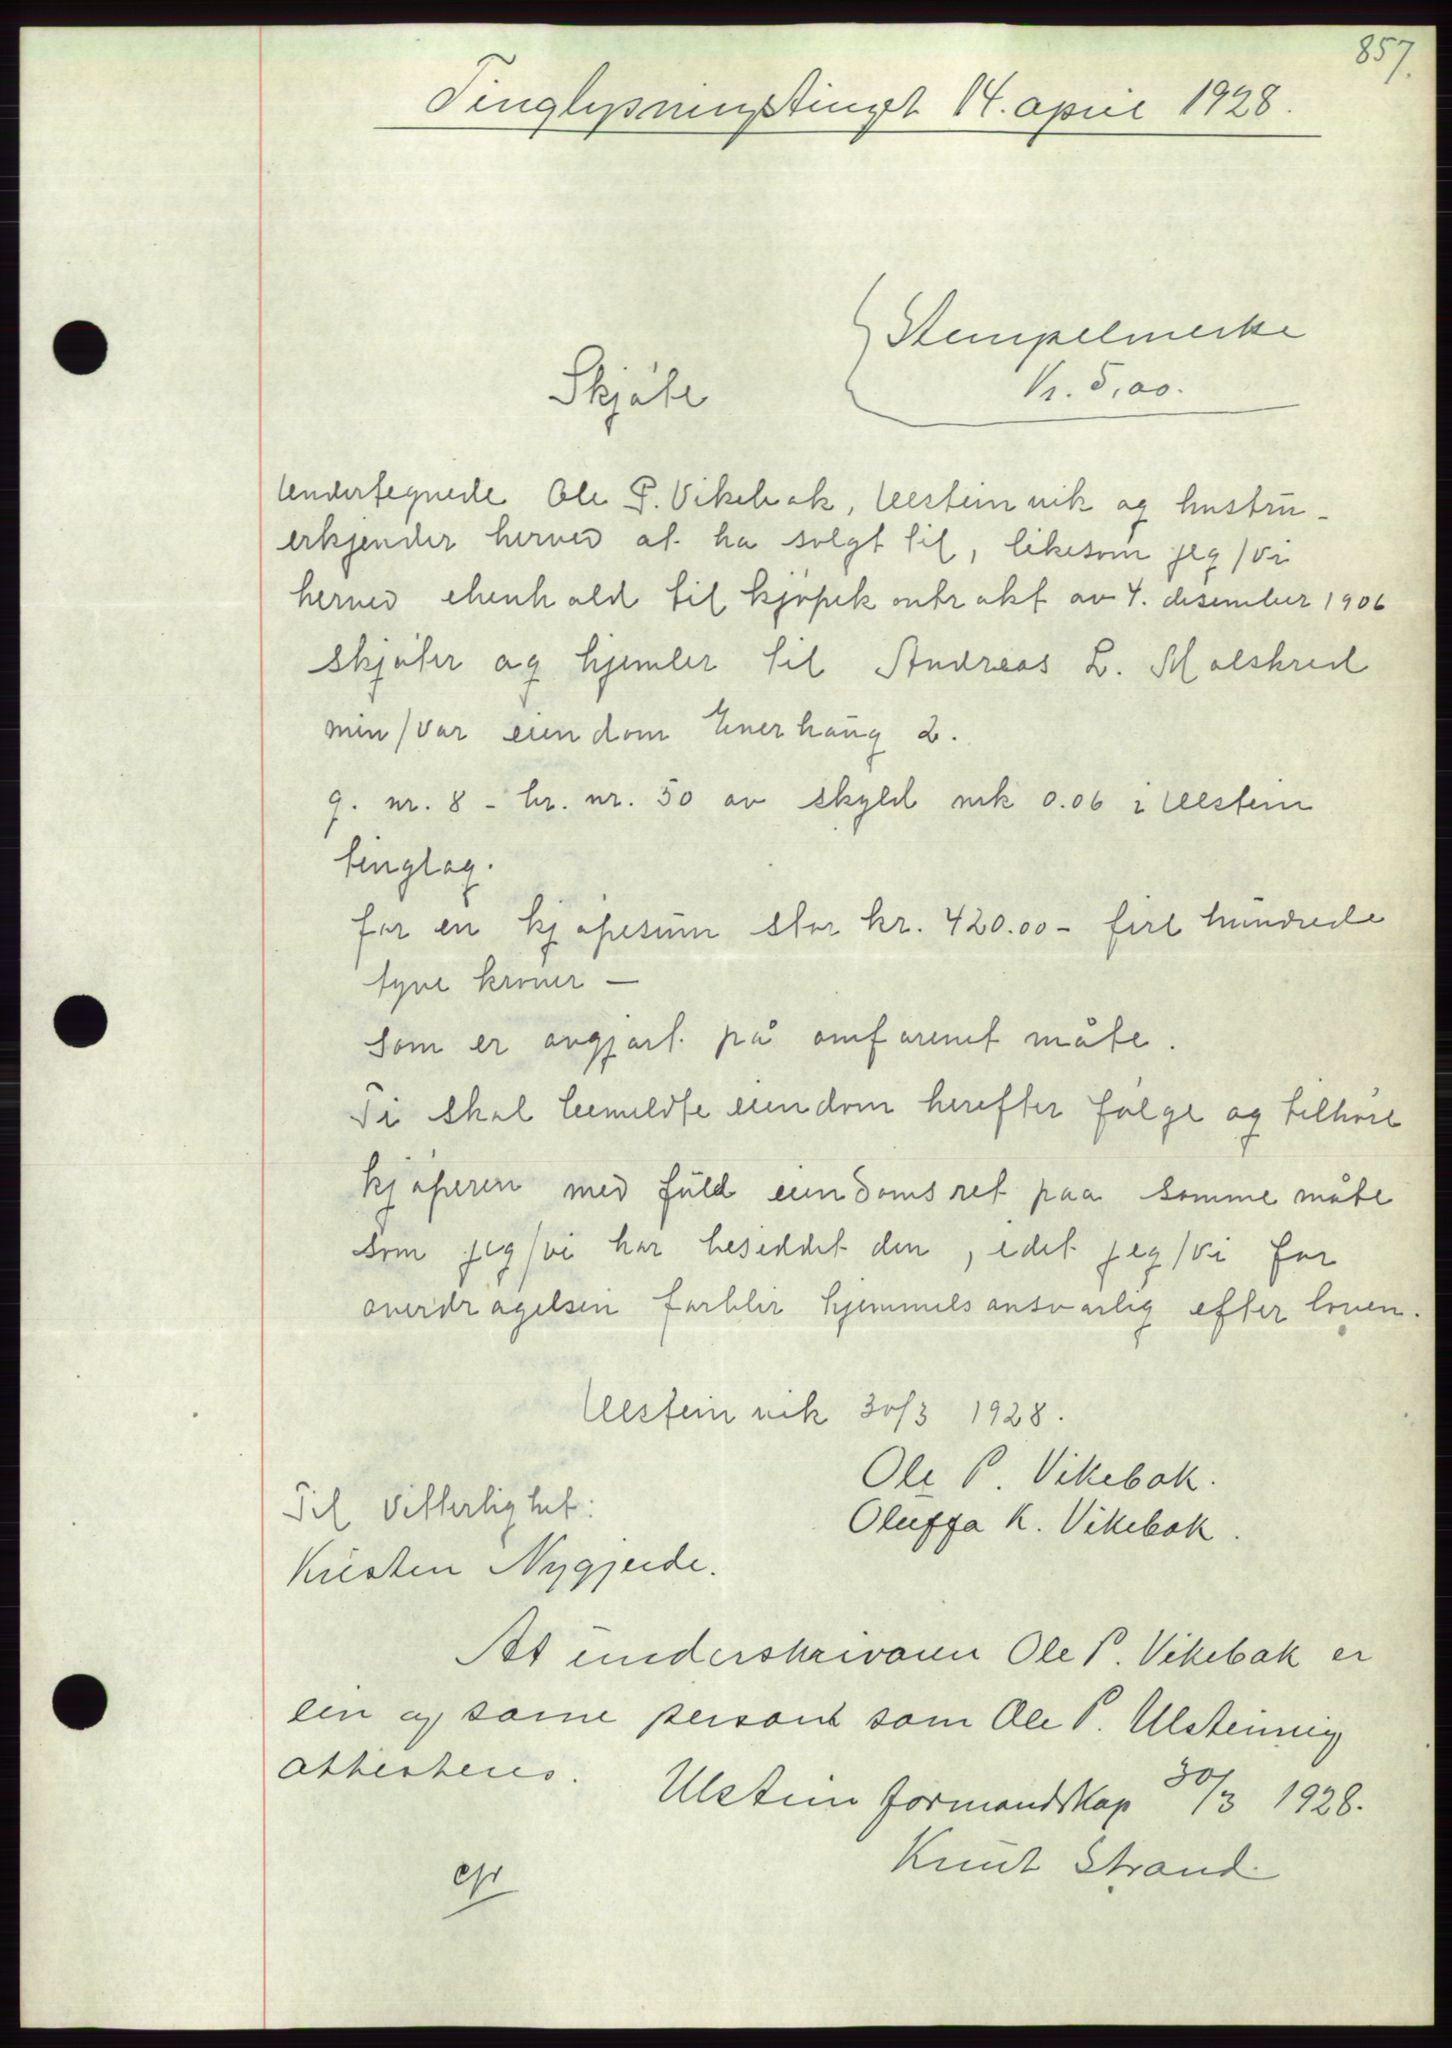 857.
Tinglysningstinget 14. april 1928.
Stempelmerke
Kr. 5,00.
Skjøte
Undertegnede Ole P. Vikebak, Ulsteinvik og hustru -
erkjender herved at ha solgt til, likesom jeg/vi
herved ehenhold til kjøpekontrakt av 4. desember 1906
skjøter og hjemler til Andreas L. Molskred
min/vor eiendom Enerhaug 2.
g. nr. 8 - br. nr. 50 av skyld mk 0.06 i Ulstein
tinglag.
for en kjøpesum stor kr. 420.00 - fire hundrede
tyve kroner -
som er avgjort på omforenet måte.
Ti skal bemeldte eiendom herefter følge og tilhøre
kjøperen med fuld eiendomsret paa samme måte
som jeg/vi har besiddet den, idet jeg/vi for
overdragelsen forblir hjemmelsansvarlig efter loven.
Ulsteinvik 30/3 1928.
Ole P. Vikebak.
Til Vitterlighet:
Oluffa K. Vikebak.
Kristen Nygjerde.
At underskrivaren Ole P. Vikebak er
ein og same person som Ole P. Ulsteinvig
attesteres.
Ulstein formandskap 30/3 1928.
Knut Strand.